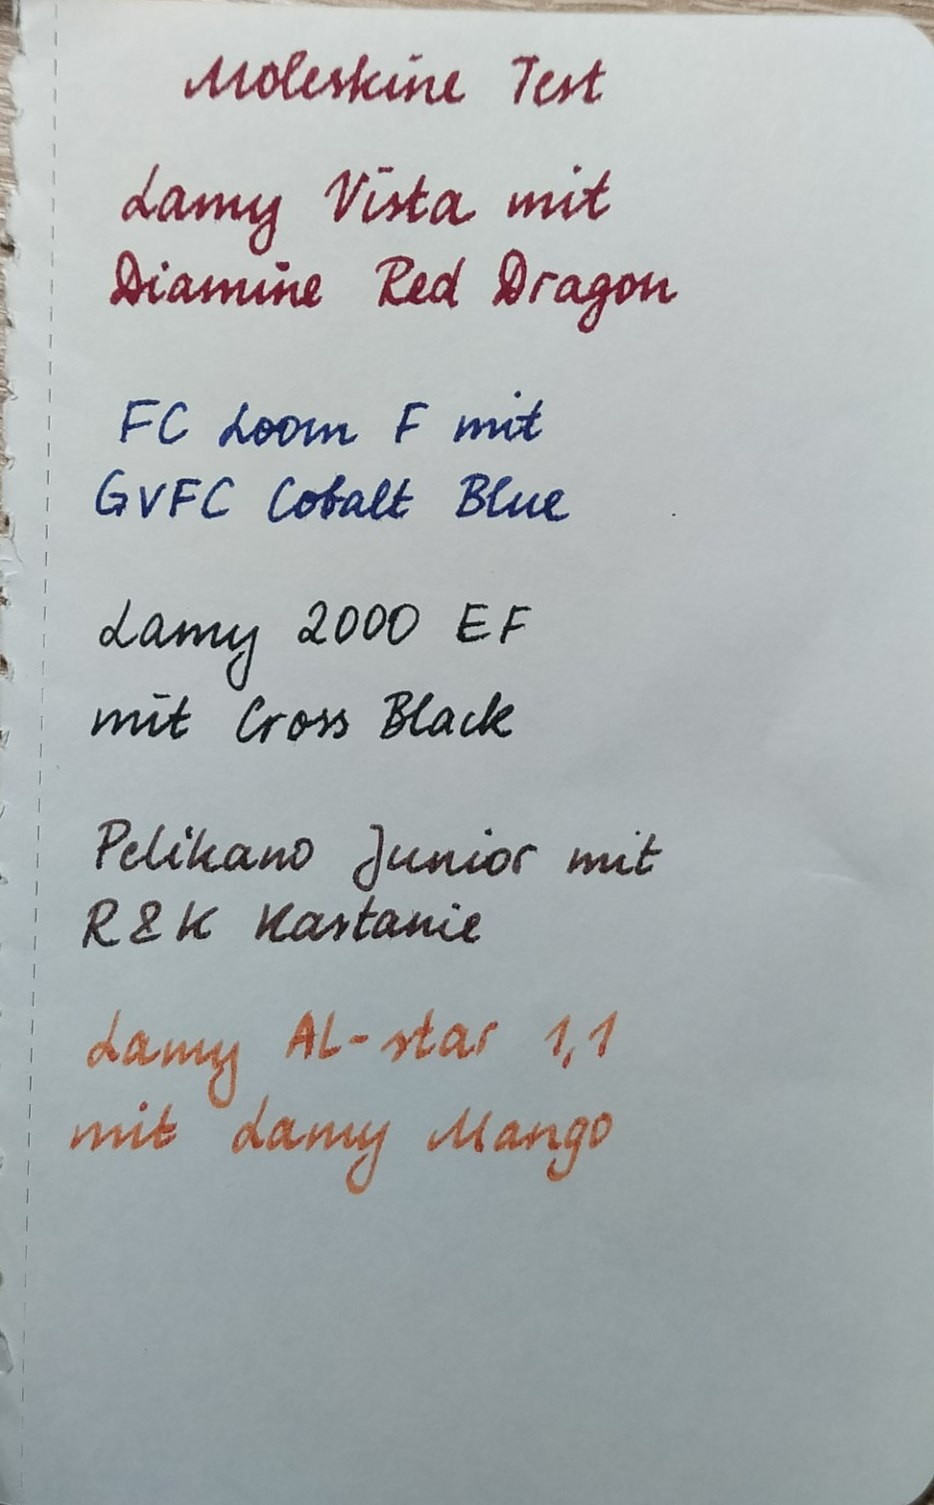 Moleskine Test
Lamy Vista mit
Diamine Red Dragon
FC Loom F mit
GvFC Cobalt Blue
Lamy 2000 EF
mit Cross Black
Pelikano Junior mit
R&K Kastanie
Lamy AL-star 1,1
mit Lamy Mango